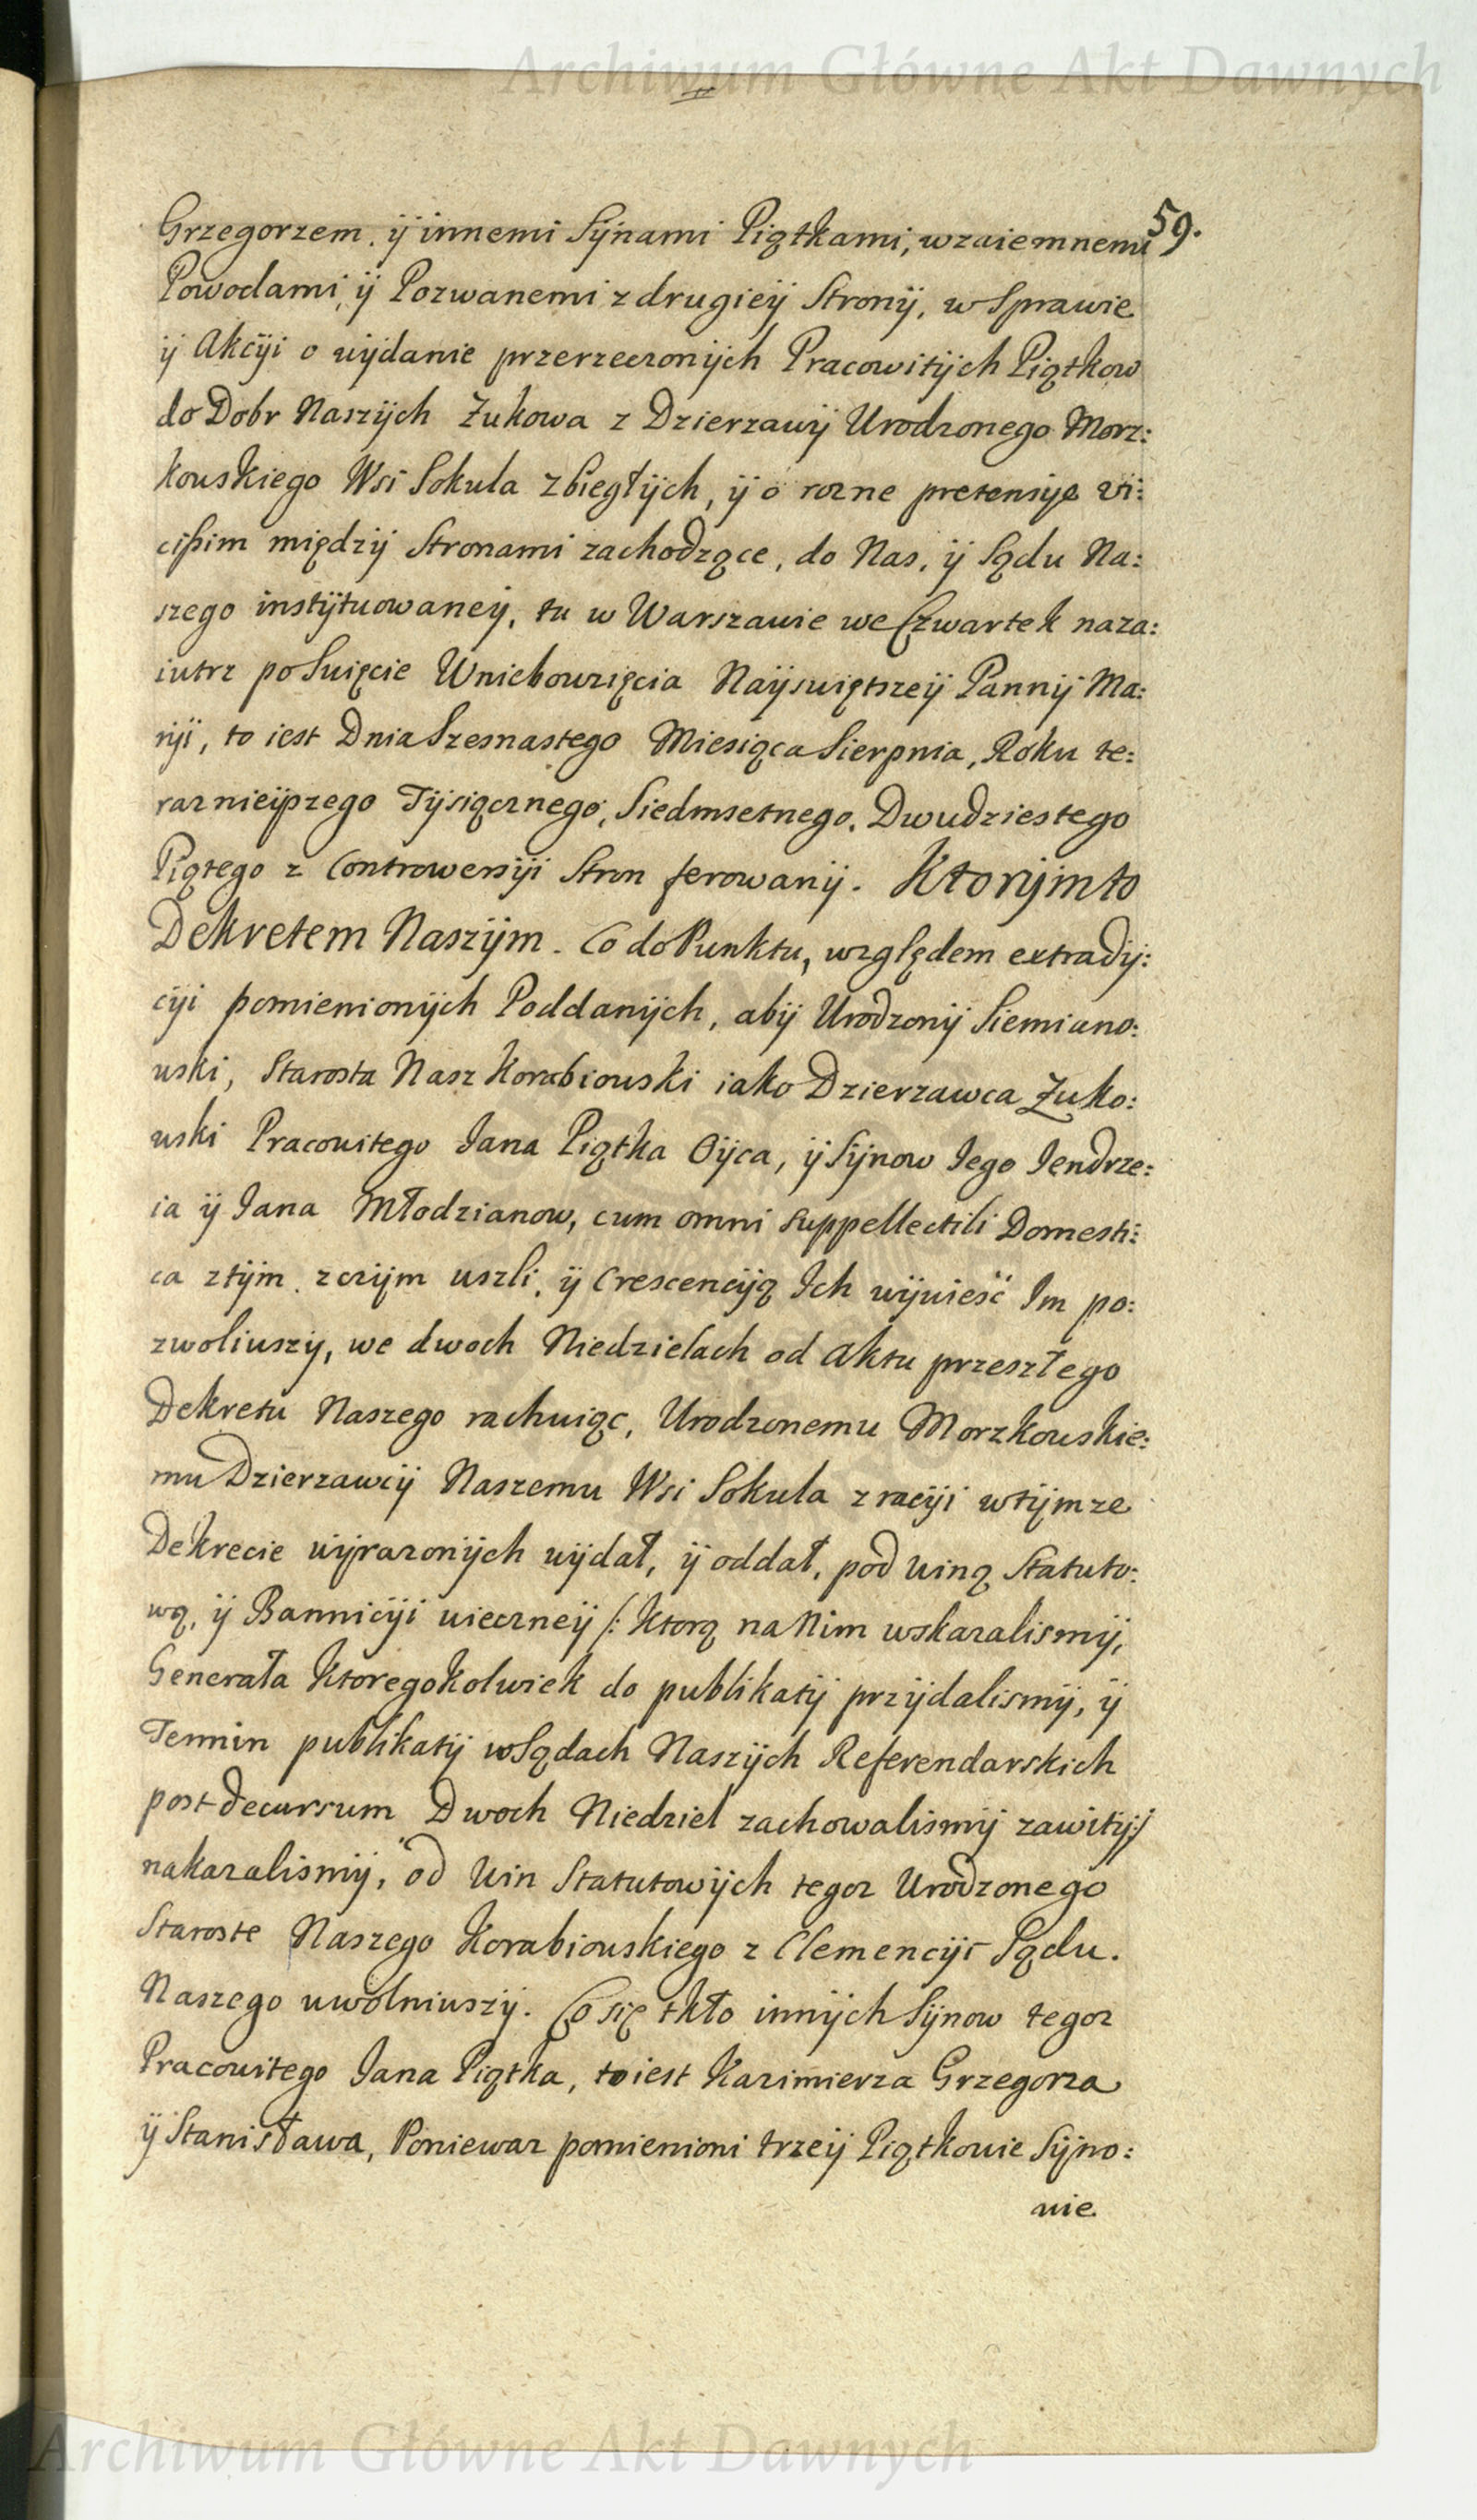 Archiwum Główne Akt Dawnych
59.
Grzegorzem, ÿ innemi Sÿnami Piątkami, wzaiemnemi
Powodami, ÿ Pozwanemi z drugieÿ Stronÿ, w Sprawie
ÿ Akcÿi o wÿdanie przerzeczonÿch Pracowitÿch Piątkow
do Dobr Naszÿch Zukowa z Dzierzawÿ Urodzonego Morz:
kowskiego Wsi Sokula zbiegłÿch, ÿ o rozne pretensÿe vi:
cißim międzÿ Stronami zachodzące, do Nas, ÿ Sądu Na:
szego instÿtuowaneÿ, tu w Warszawie we Czwartek naza:
iutrz po Swięcie Wniebowzięcia Naÿswiętszeÿ Pannÿ Ma:
rÿi, to iest Dnia Szesnastego Miesiąca Sierpnia, Roku te:
raznieÿszego Tÿsiącznego, Siedmsetnego, Dwudziestego
Piątego z Controwersÿi Stron ferowanÿ. Ktorÿmto
Dekretem Naszÿm. Co do Punktu, względem extradÿ:
cÿi pomienionÿch Poddanÿch, abÿ Urodzonÿ Siemiano:
wski, Starosta Nasz Korabiowski iako Dzierzawca Zuko:
wski Pracowitego Jana Piątka Oÿca, ÿ Sÿnow Jego Jendrze:
ia ÿ Jana Młodzianow, cum omni suppellectili Domesti:
ca ztÿm, z czÿm uszli, ÿ Crescencÿą Ich wÿwieść Im po:
zwoliwszÿ, we dwoch Niedzielach od Aktu przeszłego
Dekretu Naszego rachuiąc, Urodzonemu Morzkowskie:
mu Dzierzawcÿ Naszemu Wsi Sokula z racÿi wtÿmze
Dekrecie wÿrazonÿch wÿdał, ÿ oddał, pod winą Statuto:
wą, ÿ Bannicÿi wieczneÿ /: Ktorą na Nim wskazalismÿ,
Generała Ktoregokolwiek do publikatÿ przÿdalismÿ, ÿ
Termin publikatÿ w Sądach Naszÿch Referendarskich
post decursum Dwoch Niedziel zachowalismÿ zawitÿ:/
nakazalismÿ, od Win Statutowÿch tegoz Urodzonego
Staroste Naszego Korabiowskiego z Clemencÿi Sądu.
Naszego uwolniwszÿ. Co się tkło innÿch Sÿnow tegoz
Pracowitego Jana Piątka, to iest Kazimierza Grzegorza
ÿ Stanisława, Poniewaz pomienioni trzeÿ Piątkowie Sÿno:
wie.
Archiwum Główne Akt Dawnych